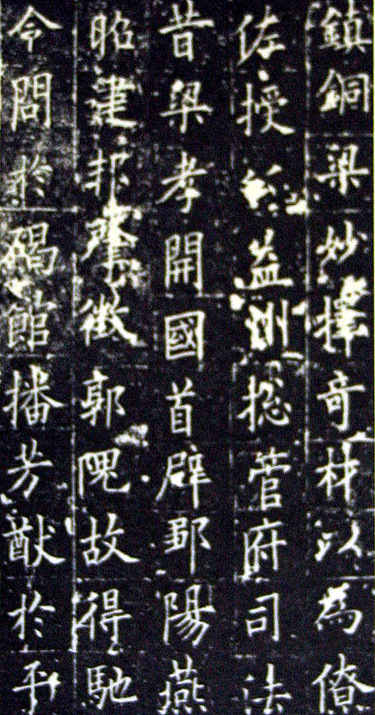 鎮銅梁妙擇奇材以為僚
佐授公益州揔管府司法
昔梁孝開國首辟鄒陽燕
昭建邦肇徵郭隗故得馳
令問於碣館播芳猷於平